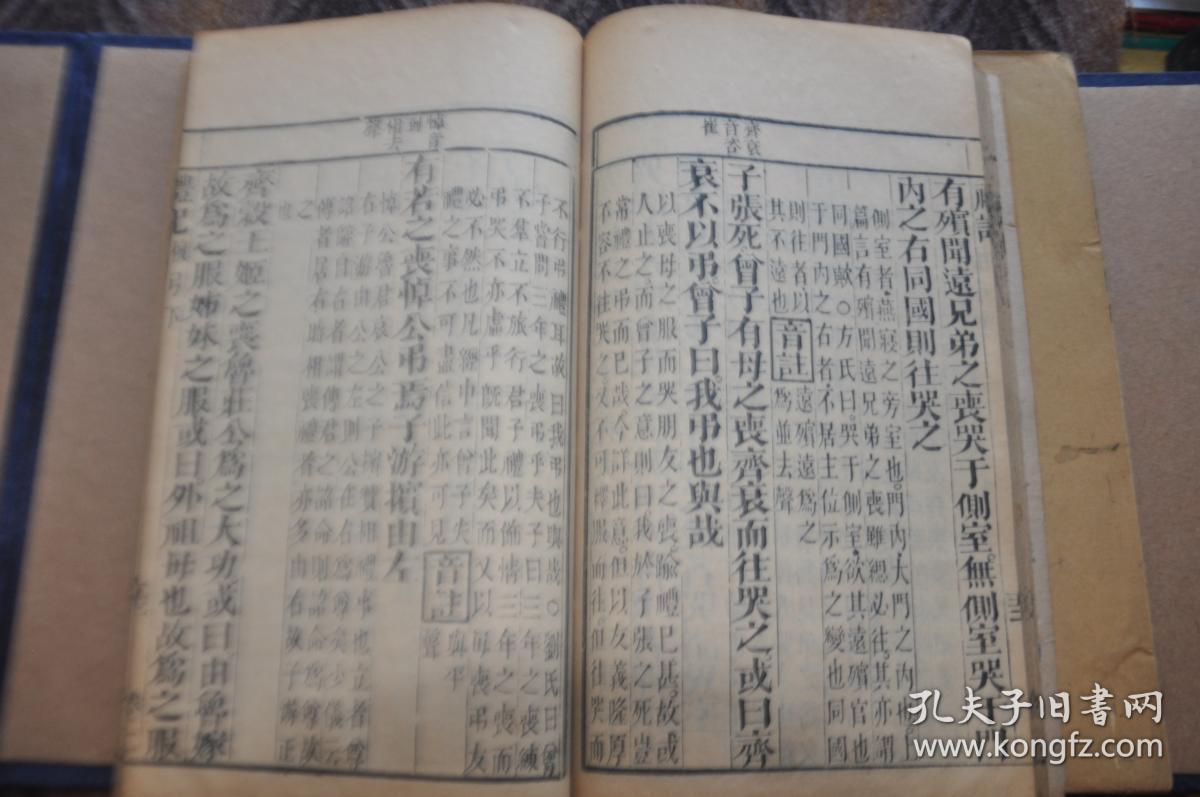 齊衰
音咨
崔
有殯聞遠兄弟之喪哭于側室無側室哭于門
內之右同國則往哭之
側室者燕寢之旁室也門內大門之內也上
篇言有殯聞遠兄弟之喪雖緦必往其亦謂
同國歟○方氏曰哭于側室欲其遠殯宮也
于門內之右者不居主位示為之變也同國
則往者以其不遠也
音註
遠殯遠為之為並去聲
子張死曾子有母之喪齊衰而往哭之或曰齊
衰不以弔曾子曰我弔也與哉
以喪母之服而哭朋友之喪踰禮已甚故或
人止之而曾子之意則曰我於子張之死豈
常禮之弔而已哉今詳此意但以友義隆厚
不容不往哭之又不可釋服而往但往哭而
不行弔禮耳故曰我弔也與哉○劉氏曰曾
子嘗問三年之喪弔乎夫子曰三年之喪練
不羣立不旅行君子禮以飾情三年之喪而
弔哭不亦虛乎既聞此矣而又以母喪弔友
必不然也凡經中言曾子失
禮之事不可盡信此亦可見
音註
與平聲
有若之喪悼公弔焉子游擯由左
悼公魯君哀公之子擯贊相禮事也立者尊
右子游由公之左則公在右為尊矣少儀云
詔辭自右者謂傳君之詔命則詔命為尊故
傳者居右時相喪禮者亦多由右故子游正
之
齊穀王姬之喪魯莊公為之大功或曰由魯嫁
故為之服姊妹之服或曰外祖母也故為之服
禮記
孔夫子旧书网
www.kongfz.com